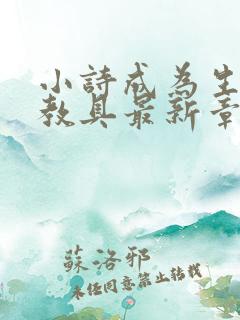 小詩成為生
教具最新章
蘇洛邪
未任同意禁止转载